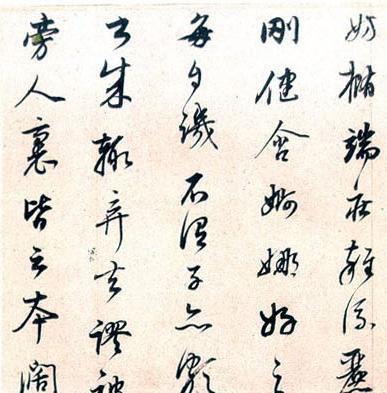 妨橢端莊雜流麗
剛健含婀娜好之
每自譏不謂子亦頗
書成輒弃去謬被
旁人裹皆云本闊